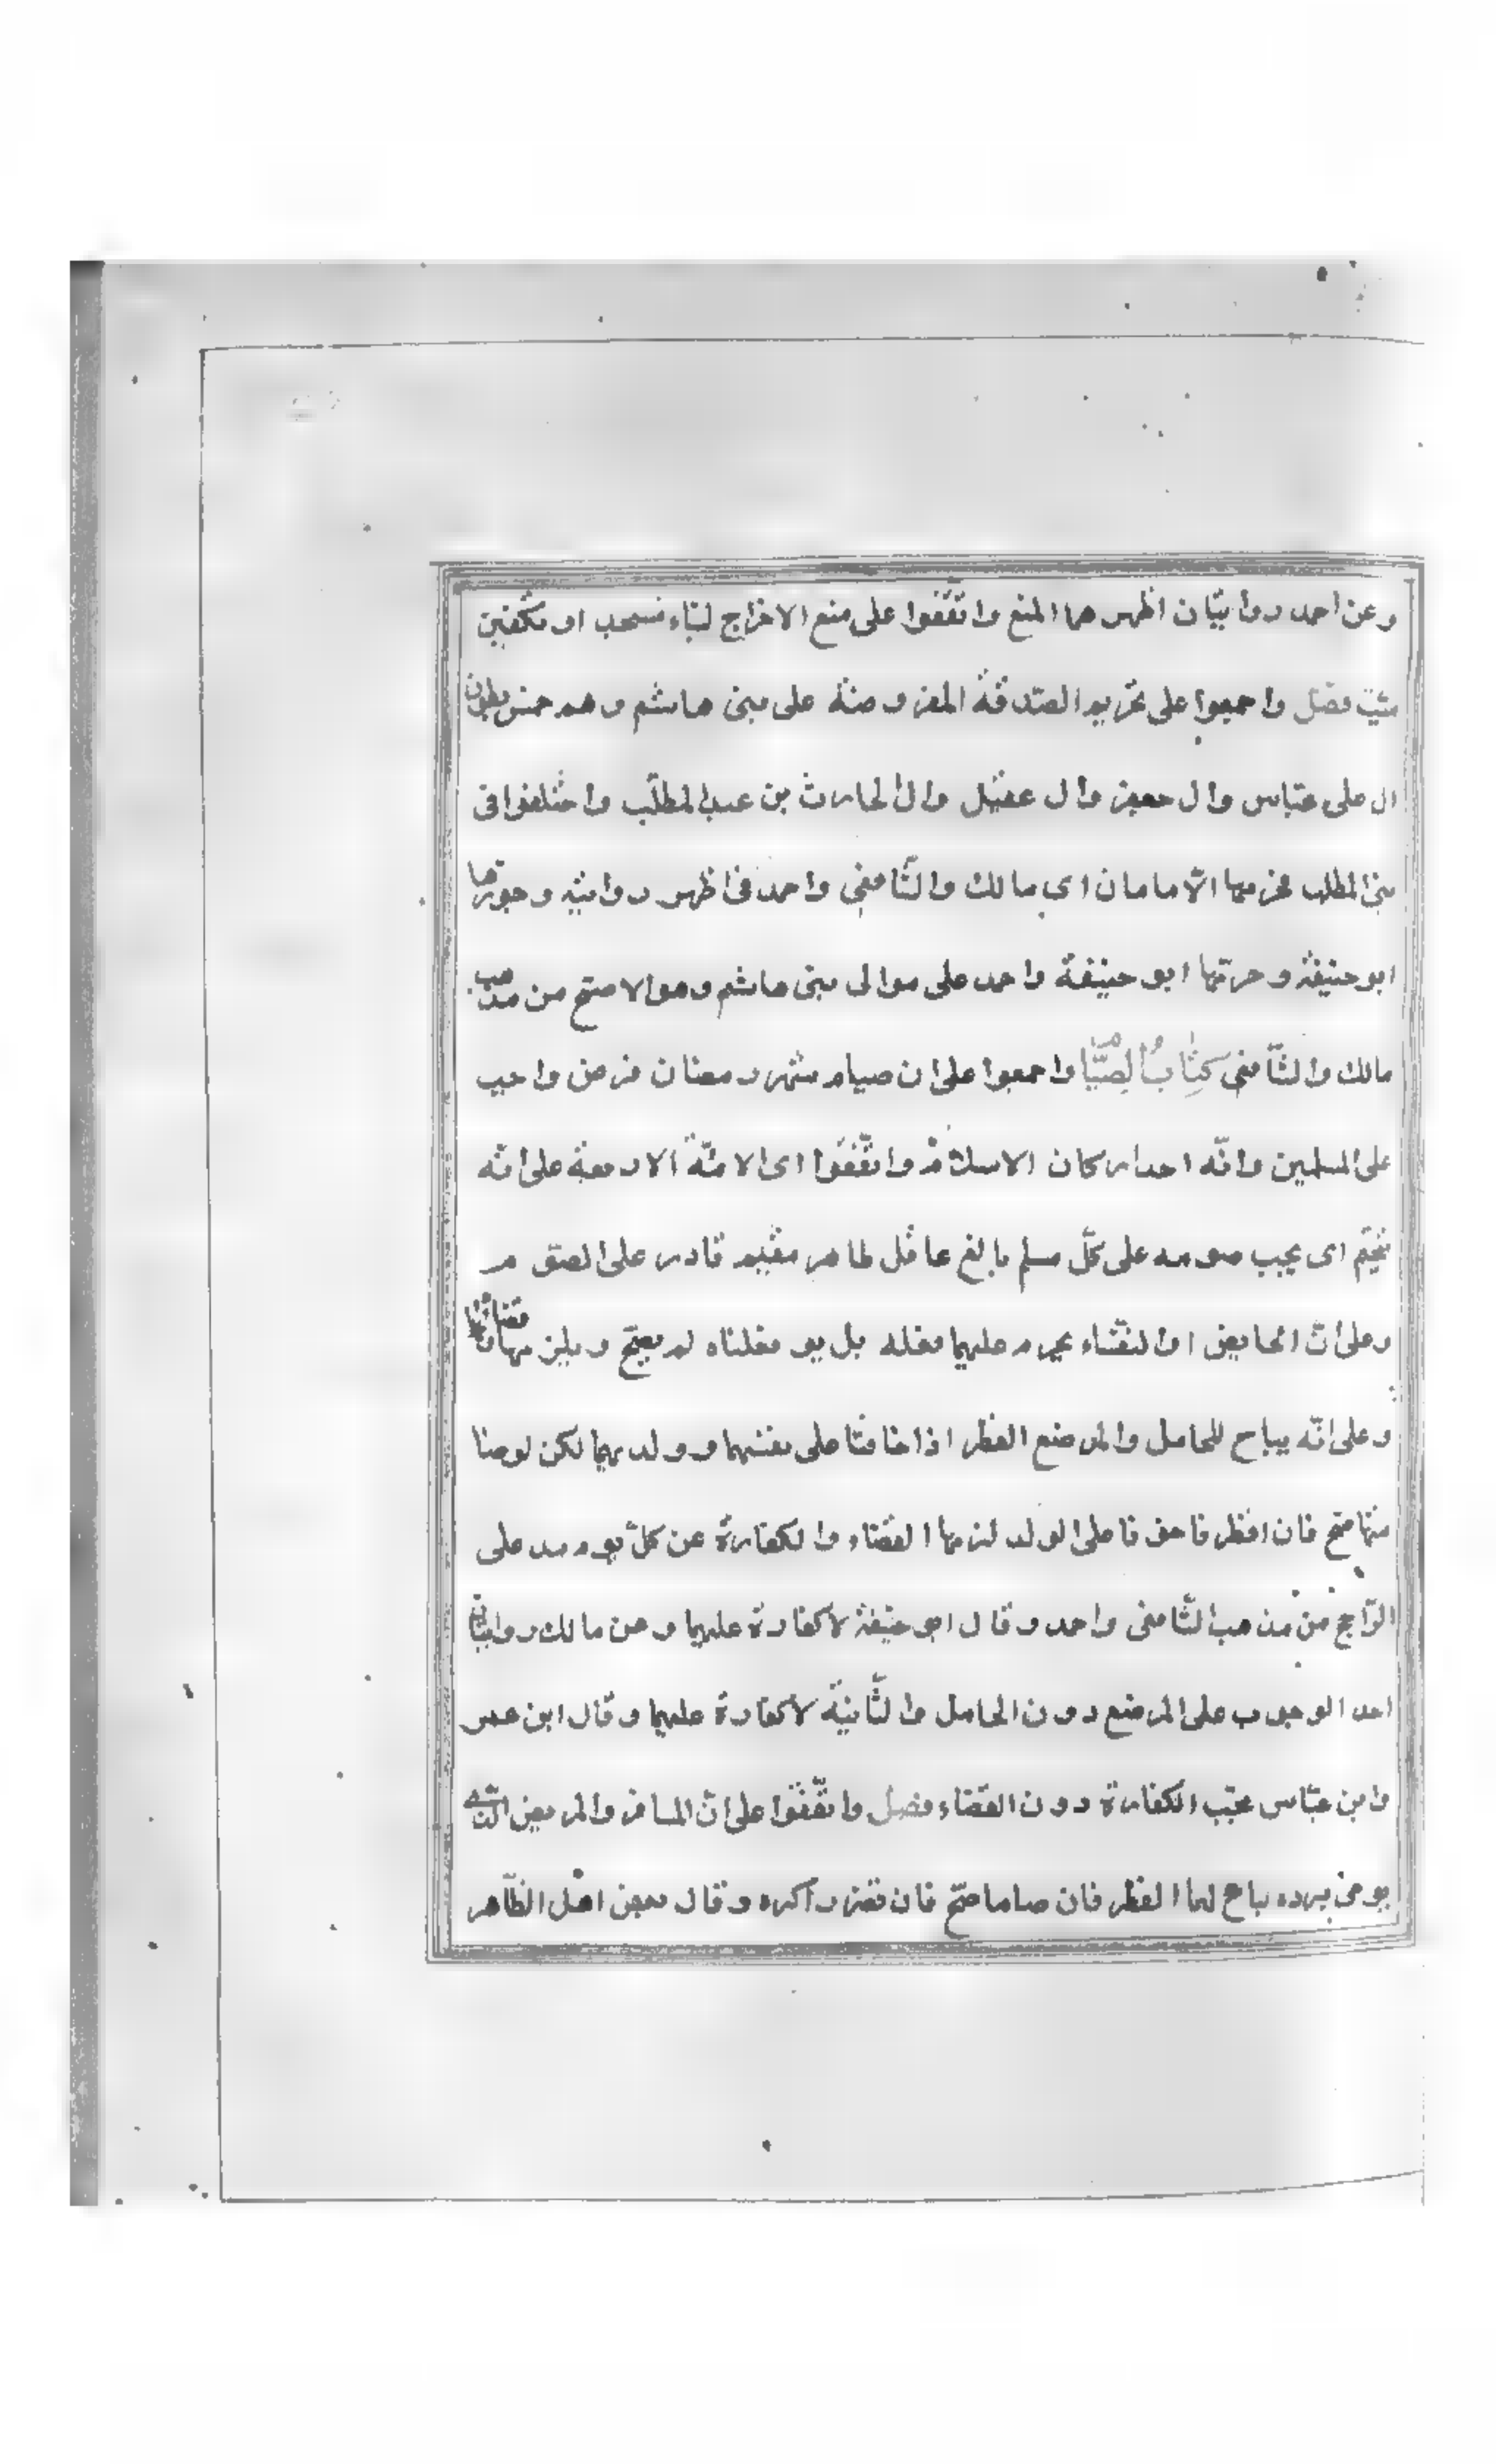 وعن احمد روايتان اظهرهما المنع واتّفقوا على منع الاخراج لبناء مسجد او تكفين
ميّت فصل واجمعوا على تحريم الصّدقة المفروضة على بنى هاشم وهم خمس بطون
ال على عبّاس وال جعفر وال عقيل وال الحارث بن عبد المطلّب واختلفوا فى
بنى المطلب فحرمها الامامان اى مالك والشّافعى واحمد فى اظهر روايتيه وجوزها
ابو حنيفة وحرّمها ابو حنيفة واحمد على موالى بنى هاشم وهو الاصحّ من مذهب
مالك والشّافعى كِتَابُ الصِّيَام واجمعوا على ان صيام شهر رمضان فرض واجب
على المسلمين وانّه احد اركان الاسلام واتّفقوا اى الائمّة الاربعة على انّه
يتحتّم اى يجب صومه على كلّ مسلم بالغ عاقل طاهر مقيم قادر على الصّوم
وعلى انّ الحايض او النفسّاء يحرم عليهما فعله بل يو فعلتاه لم يصحّ ويلزمهما قضائها
وعلى انّه يباح للحامل والمرضع الفطر اذا خافتا على نفسهما وولديهما لكن لو صامتا
صحّ فان افطرتا خوفا على الولد لزمهما القضاء والكفارة عن كلّ يوم مد على
الرّاجح من مذهب الشّافعى واحمد وقال ابو حنيفة لا كفارة عليهما وعن مالك روايتان
احد الوجوب على المرضع دون الحامل والثّانية لا كفارة عليهما وقال ابن عمر
وابن عبّاس يجب الكفارة دون القضاء فصل واتّفقوا على انّ المسافر والمريض الّذى
يرجى برده يباح لهما الفطر فان صاما صحّ فان تضرر اكره وقال بعض اهل الظّاهر